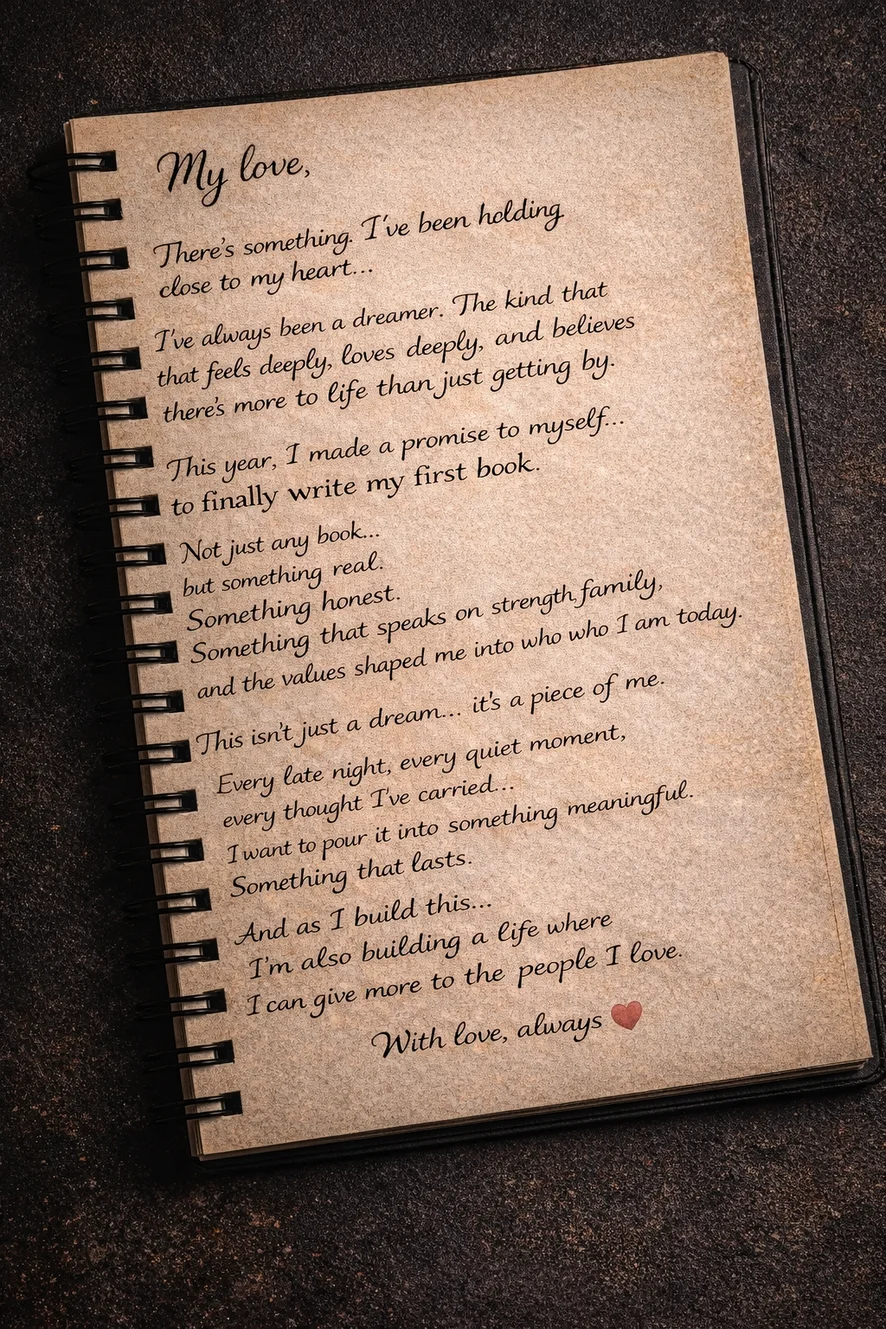 My love,
There's something. I've been holding
close to my heart...
I've always been a dreamer. The kind that
that feels deeply, loves deeply, and believes
there's more to life than just getting by.
This year, I made a promise to myself...
to finally write my first book.
Not just any book...
but something real.
Something honest.
Something that speaks on strength family,
and the values shaped me into who who I am today.
This isn't just a dream... it's a piece of me.
Every late night, every quiet moment,
every thought I've carried...
I want to pour it into something meaningful.
Something that lasts.
And as I build this...
I'm also building a life where
I can give more to the people I love.
With love, always ❤